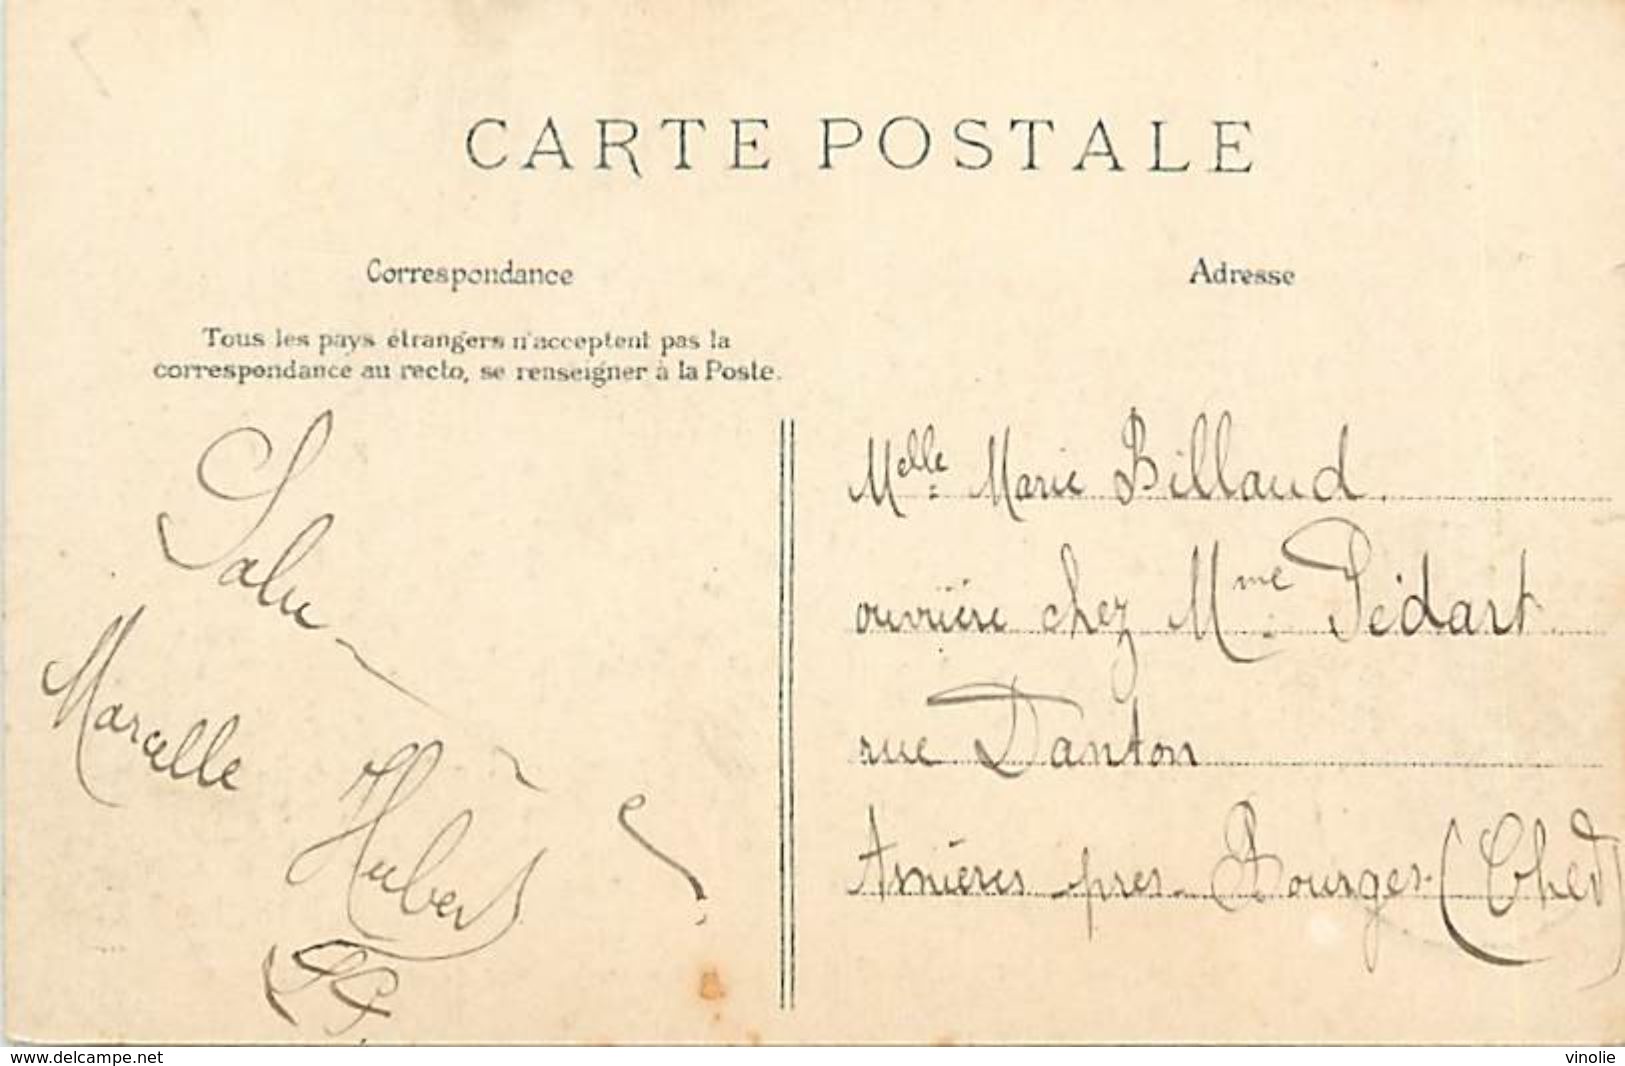 CARTE POSTALE
Correspondance
Tous les pays étrangers n'acceptent pas la
correspondance au recto, se renseigner à la Poste.
Salu
Marcelle
Hubert
Adresse
Melle Marie Billaud.
ouvrière chez Mme Pédart.
rue Danton
Asnières près Bourges (Cher)
www.delcampe.net
vinolie